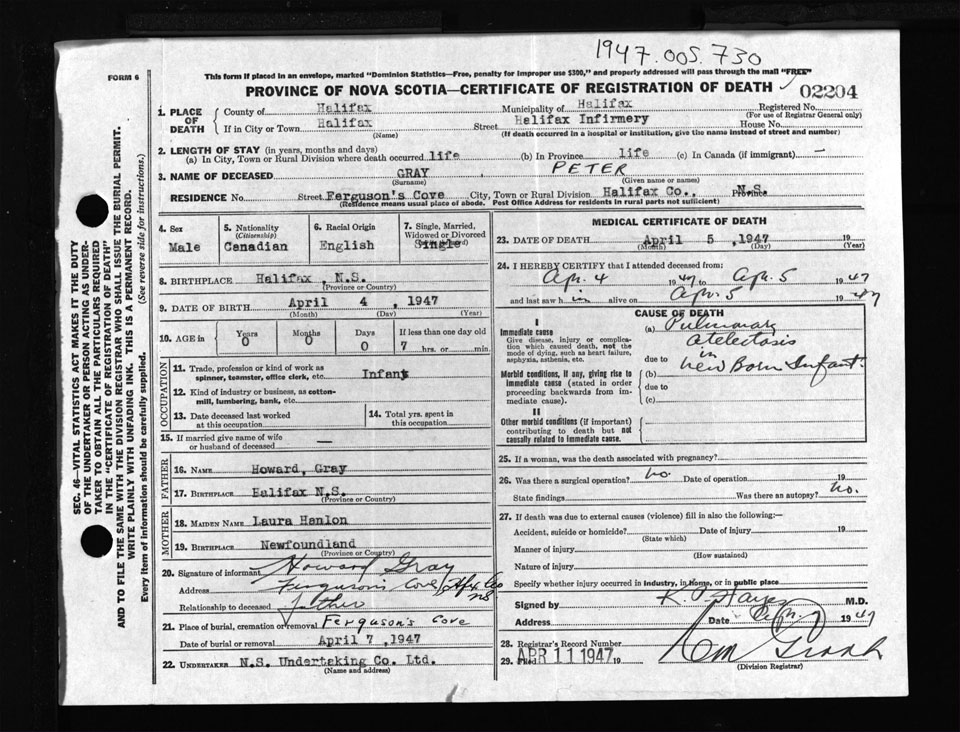 1947.005.730
FORM 6
This form if placed in an envelope, marked "Dominion Statistics—Free, penalty for improper use $300," and properly addressed will pass through the mail "FREE"
PROVINCE OF NOVA SCOTIA—CERTIFICATE OF REGISTRATION OF DEATH
02204
1. PLACE OF DEATH
County of Halifax
Municipality of Halifax
Registered No.
(For use of Registrar General only)
If in City or Town Halifax
(Name)
Street Halifax Infirmery
House No.
(If death occurred in a hospital or institution, give the name instead of street and number)
2. LENGTH OF STAY (in years, months and days)
(a) In City, Town or Rural Division where death occurred life (b) In Province life (c) In Canada (if immigrant) —
3. NAME OF DECEASED GRAY PETER
(Surname) (Given name or names)
RESIDENCE No. Street Ferguson's Cove City, Town or Rural Division Halifax Co., Province N.S.
(Residence means usual place of abode. Post Office Address for residents in rural parts not sufficient)
4. Sex
Male
5. Nationality
(Citizenship)
Canadian
6. Racial Origin
English
7. Single, Married, Widowed or Divorced
Single
8. BIRTHPLACE Halifax, N.S.
(Province or Country)
9. DATE OF BIRTH April 4, 1947
(Month) (Day) (Year)
10. AGE in
Years Months Days If less than one day old
0 0 0 7 hrs. or min.
OCCUPATION
11. Trade, profession or kind of work as spinner, teamster, office clerk, etc. Infant
12. Kind of industry or business, as cotton-mill, lumbering, bank, etc.
13. Date deceased last worked at this occupation
14. Total yrs. spent in this occupation
15. If married give name of wife or husband of deceased —
FATHER
16. NAME Howard, Gray
17. BIRTHPLACE Halifax N.S.
(Province or Country)
MOTHER
18. MAIDEN NAME Laura Hanlon
19. BIRTHPLACE Newfoundland
(Province or Country)
20. Signature of informant Howard Gray
Address Ferguson's Cove, Hfx Co NS
Relationship to deceased father
21. Place of burial, cremation or removal Ferguson's Cove
Date of burial or removal April 7, 1947
22. UNDERTAKER N.S. Undertaking Co. Ltd.
(Name and address)
MEDICAL CERTIFICATE OF DEATH
23. DATE OF DEATH April 5, 1947 19
(Month) (Day) (Year)
24. I HEREBY CERTIFY that I attended deceased from:
Apr. 4 1947 to Apr. 5 1947
and last saw him alive on Apr. 5 1947
CAUSE OF DEATH
I
Immediate cause
Give disease, injury or complication which caused death, not the mode of dying, such as heart failure, asphyxia, asthenia, etc.
(a) Pulmonary Atelectasis
due to in
Morbid conditions, if any, giving rise to immediate cause (stated in order proceeding backwards from immediate cause).
(b) New Born Infant.
due to
(c)
II
Other morbid conditions (if important) contributing to death but not causally related to immediate cause.
25. If a woman, was the death associated with pregnancy?
26. Was there a surgical operation? No Date of operation 19
State findings Was there an autopsy? No.
27. If death was due to external causes (violence) fill in also the following:—
Accident, suicide or homicide? Date of injury 19
(State which)
Manner of injury
(How sustained)
Nature of injury
Specify whether injury occurred in industry, in home, or in public place
Signed by M.D.
Address Date Apr. 7 1947
28. Registrar's Record Number
29. Filed APR 11 1947 19
(Division Registrar)
SEC. 46—VITAL STATISTICS ACT MAKES IT THE DUTY
OF THE UNDERTAKER OR PERSON ACTING AS UNDER-
TAKER TO OBTAIN ALL THE PARTICULARS REQUIRED
IN THE "CERTIFICATE OF REGISTRATION OF DEATH"
AND TO FILE THE SAME WITH THE DIVISION REGISTRAR WHO SHALL ISSUE THE BURIAL PERMIT.
WRITE PLAINLY WITH UNFADING INK. THIS IS A PERMANENT RECORD.
Every item of information should be carefully supplied. (See reverse side for instructions.)